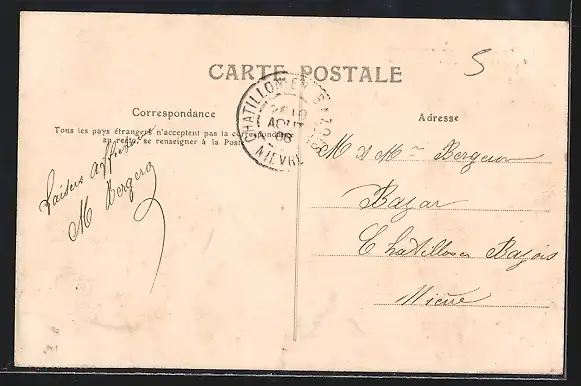 5
CARTE POSTALE
CHATILLON-EN-BAZOIS
AOUT
08
NIEVRE
Correspondance
Tous les pays étrangers n'acceptent pas la correspondance
au recto, se renseigner à la Poste
Adresse
M & Me Bergeron
Bazar
Chatillon en Bazois
Nièvre
Baisers affectueux
M Bergeron